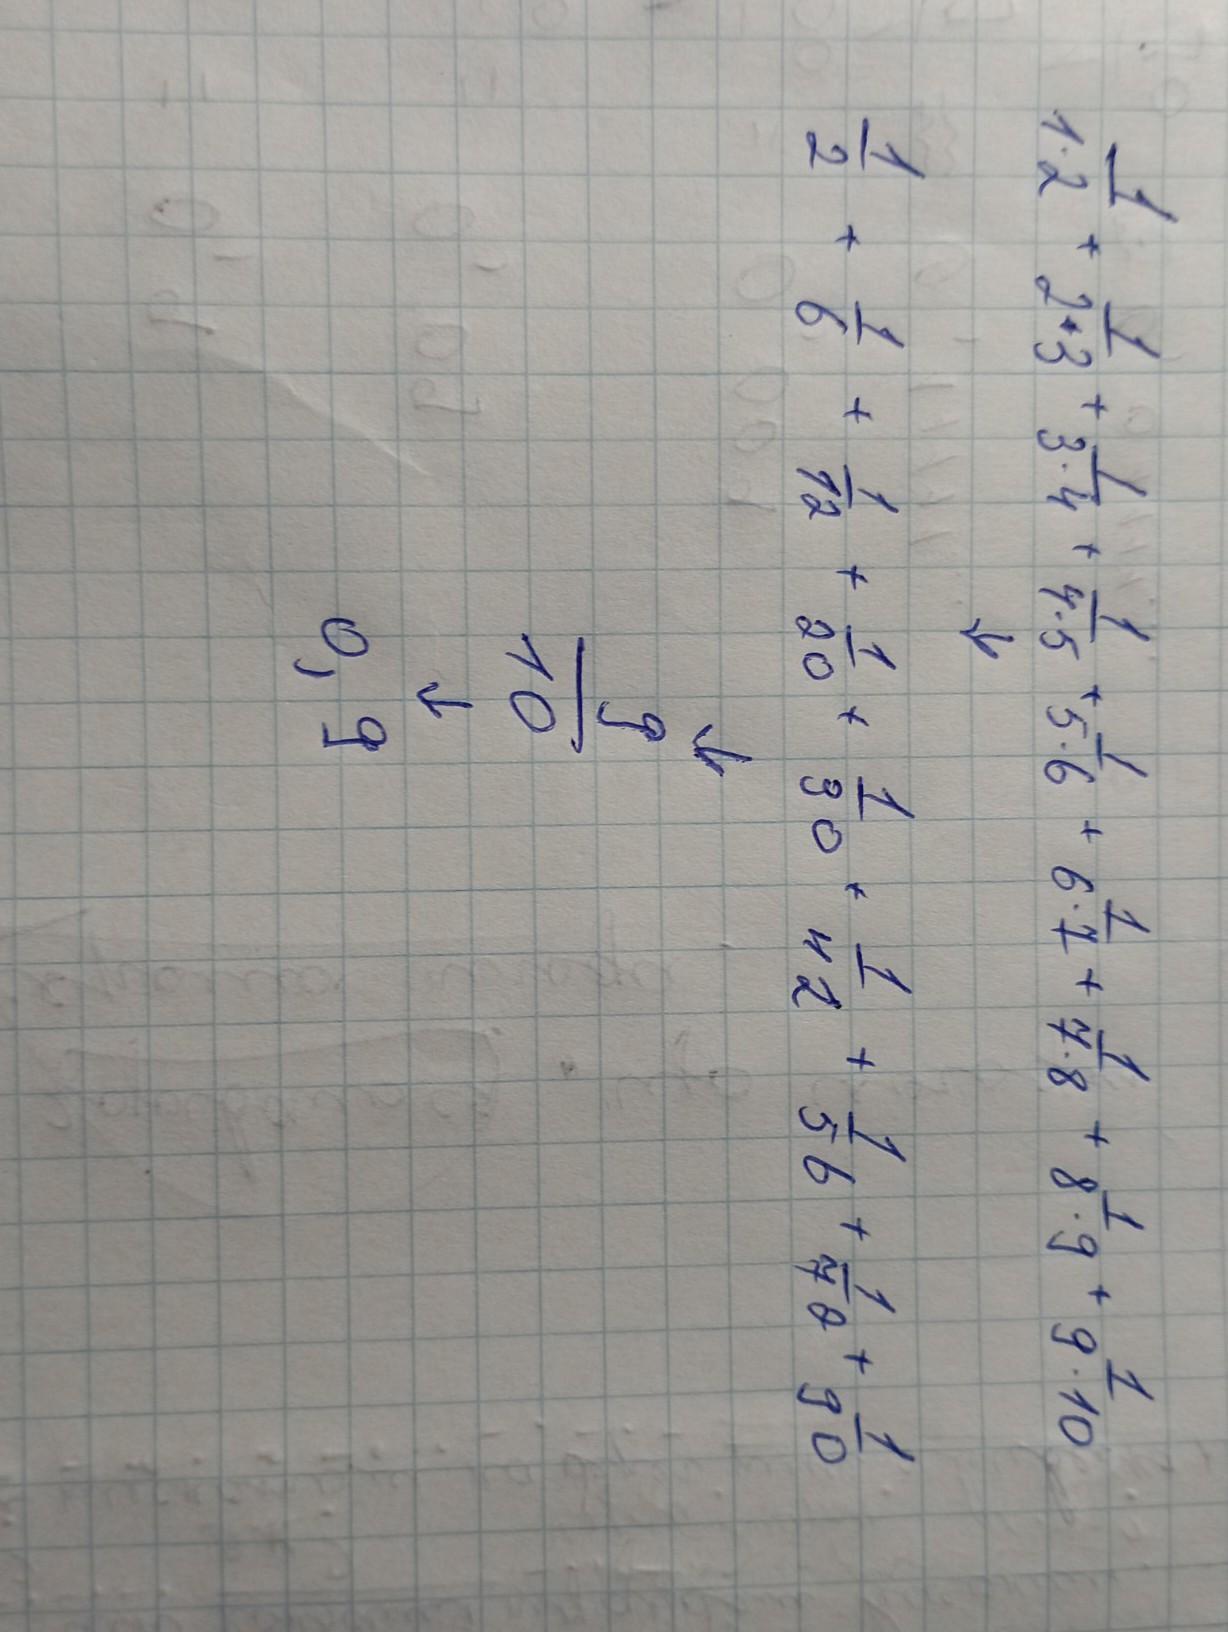 1/1·2 + 1/2·3 + 1/3·4 + 1/4·5 + 1/5·6 + 1/6·7 + 1/7·8 + 1/8·9 + 1/9·10
↓
1/2 + 1/6 + 1/12 + 1/20 + 1/30 + 1/42 + 1/56 + 1/72 + 1/90
↓
9/10
↓
0,9